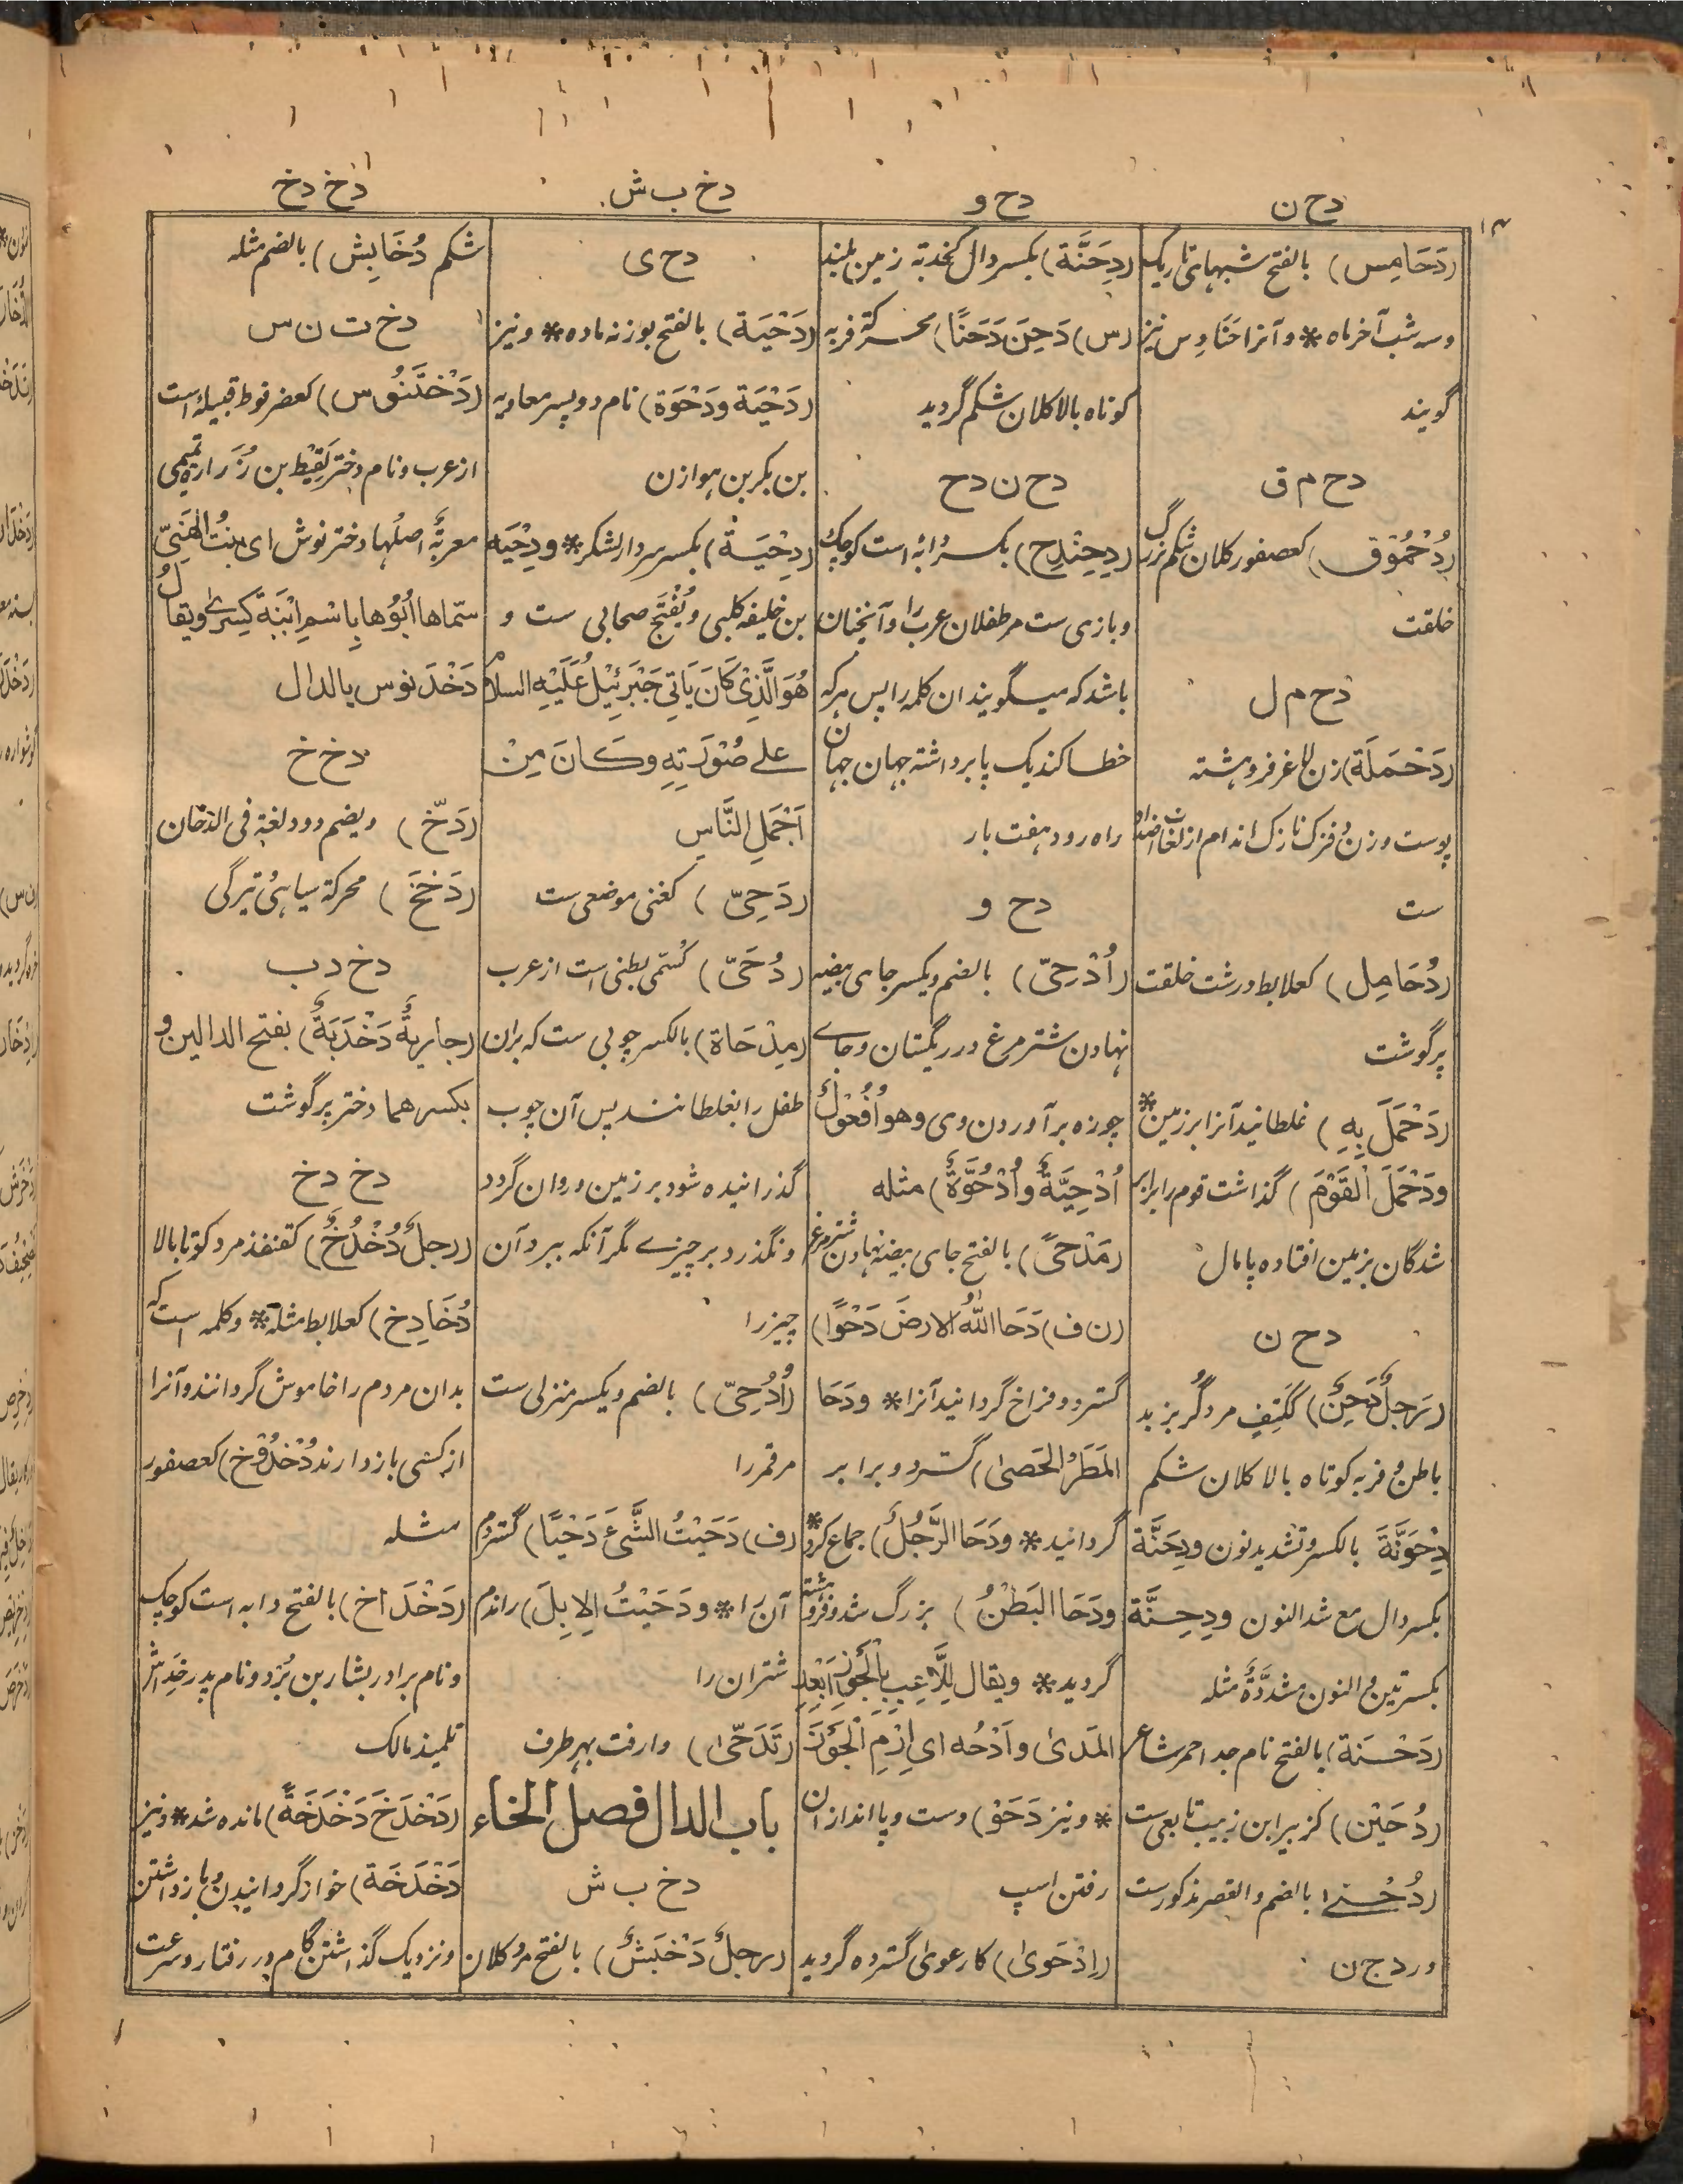 دح ن
دح و
دخ ب ش
دخ دخ
۱۴
(دَحَامِس) بالفتح شبہای تاریک
وسہ شب آخر ماہ * و آنرا حَنَادِس نیز
گویند
دح م ق
(دُحْمُوق) کعصفور کلان شکم بزرگ
خلقت
دح م ل
(دَحْمَلَة) زن لاغر فروہشتہ
پوست وزن فزک نازک اندام از لغات اضداد
ست
(دُحَامِل) کعلابط درشت خلقت
پر گوشت
(دَحْمَلَ بِهِ) غلطانید آنرا بر زمین *
ودَحْمَلَ الْقَوْمَ) گذاشت قوم را برابر
شدگان بزمین افتادہ پامال
دح ن
(رَجلٌ دَحِنٌ) کَکَتِفٍ مرد گربز بد
باطن و فربہ کوتاہ بالا کلان شکم
دِحْوَنَّةَ بالکسر وتشدید نون ودِحَنَّة
بکسر دال مع شد النون ودِحِنَّة
بکسرتین و النون مشدَّدَةٌ مثلہ
(دَحْسَنَة) بالفتح نام جد احمر شاعر
(دُحَیْن) کزبیر ابن زبیب تابعی ست
(دُحْنے) بالضم والقصر مذکورست
در دج ن
(دِحَنَّة) بکسر دال کخدبّة زمین بلند
(س) دَحِنَ دَحَنًا) محرکة فربہ
کوتاہ بالا کلان شکم گردید
دح ن دح
(دِحِنْدِح) بکسر دابہ است کوچک
و بازی ست مر طفلان عرب را و آنچنان
باشد کہ میگویند ان کلمہ را پس ہر کہ
خطا کند یک پا برداشتہ جہان جہان
راہ رود ہفت بار
دح و
(اُدْحِیّ) بالضم ویکسر جای بیضہ
نہادن شتر مرغ در ریگستان و جاے
چوزہ بر آوردن وی وهو اُفْعُوْلٌ
اُدْحِیَّةٌ واُدْحُوَّةٌ) مثلہ
(مَدْحیً) بالفتح جای بیضہ نہادن شتر مرغ
(ن ف) دَحَا اللّٰهُ الارضَ دَحْوًا)
گسترد و فراخ گردانید آنرا * ودَحَا
المَطَرُ الحَصیٰ) گسترد و برابر
گردانید * ودَحَا الرَّجُلُ) جماع کرد *
ودَحَا البَطْنُ) بزرگ شد و فروہشتہ
گردید * ویقال لِلَّاعِبِ بِالْجَوْزِ اَبْعِدِ
المَدیٰ واَدْحُه ای اِرْمِ الْجَوْزَ
* ونیز دَحَوْ) دست و پا انداز ان
رفتن اسپ
(اِدْحَویٰ) کارعویٰ گستردہ گردید
دح ی
(دَحْیَة) بالفتح بوزنہ مادہ * ونیز
(دَحْیَة ودَحْوَة) نام دو پسر معاویہ
بن بکر بن ہوازن
(دِحْیَة) بکسر سردار لشکر * ودِحْیَہ
بن خلیفہ کلبی ویُفْتَح صحابی ست و
هُوَ الَّذِیْ کَانَ یَاتِی جَبْرَئِیْلُ عَلَیْهِ السلام
علے صُوْرَتِهِ وکَانَ مِنْ
اَجْمَلِ النَّاسِ
(دَحِیّ) کغنی موضعی ست
(دُحَیّ) کسُمَّی بطنی است از عرب
(مِدْحَاة) بالکسر چوبی ست کہ بران
طفل را بغلطانند پس آن چوب
گذرانیدہ شود بر زمین و روان گردد
و نگذرد بر چیزے مگر آنکہ ببرد آن
چیز را
(اُدُحِیّ) بالضم ویکسر منزلی ست
مر قمر را
(ف) دَحَیْتُ الشَّیْءَ دَحْیًا) گستردم
آن را * ودَحَیْتُ الاِبِلَ) راندم
شتران را
(تَدَحّیٰ) وا رفت بہر طرف
باب الدال فصل الخاء
دخ ب ش
(رجلٌ دَخْبَشٌ) بالفتح مرد کلان
شکم دُخَابِش) بالضم مثلہ
دخ ت ن س
(دَخْتَنُوْس) کعضرفوط قبیلہ است
از عرب و نام دختر لَقِیْط بن زُرَارہ تمیمی
معربةٌ اصلُها دختر نوش ای بِنْتُ الْهَنِیّ
سمّاها اَبُوْها بِاسْمِ ابْنَةِ کِسریٰ ویقالُ
دَخْدَنوس بالدال
دخ خ
(دَخّ) ویضم دود لغة فی الدخان
(دَخَخَ) محرکة سیاہی و تیرگی
دخ دب
(جاریةٌ دَخْدَبَةٌ) بفتح الدالین و
بکسرهما دختر پر گوشت
دخ دخ
(رجلٌ دُخْدُخٌ) کقنفذ مرد کوتاہ بالا
دُخَادِخ) کعلابط مثلہ * و کلمہ است کہ
بدان مردم را خاموش گردانند و آنرا
از کسی باز دارند دُخْدُوْخ) کعصفور
مثلہ
(دَخْدَاخ) بالفتح دابہ است کوچک
و نام برادر بشار بن بُرد و نام پدر خِداش
تلمیذ مالک
(دَخْدَخَ دَخْدَخَةً) ماندہ شد * ونیز
دَخْدَخَة) خوار گردانیدن و باز داشتن
و نزدیک گذاشتن گام در رفتار و سرعت